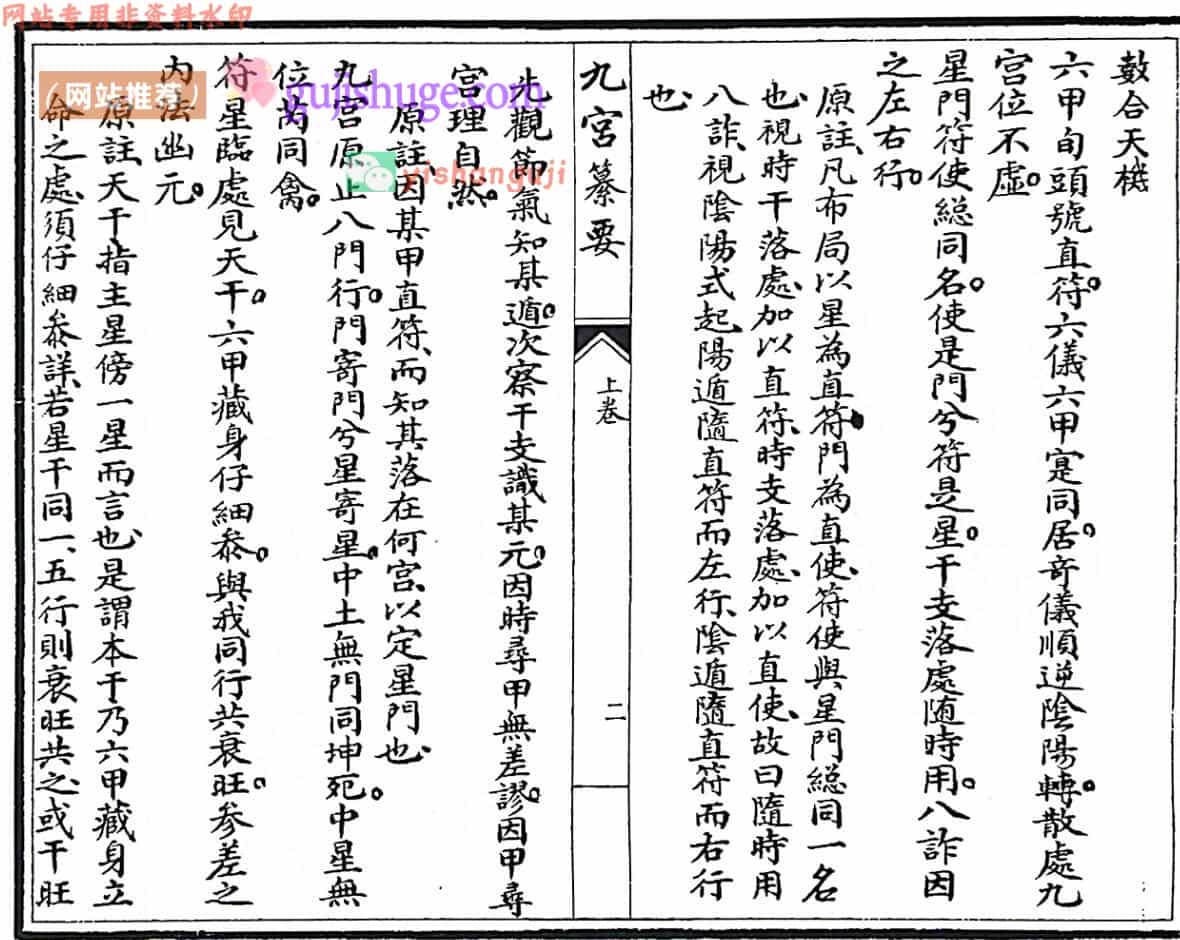 网站专用非资料水印
數合天機
六甲旬頭號直符。六儀六甲寔同居。竒儀順逆陰陽轉。散處九
宮位不虛。
星門符使総同名。使是門兮符是星。干支落處随時用。八詐因
之左右行。
原註、凡布局以星為直符、門為直使、符使與星門総同一名
也、視時干落處、加以直符、時支落處、加以直使、故曰隨時用
八詐、視陰陽式起、陽遁隨直符而左行、陰遁隨直符而右行
也、
九宮纂要
上卷
二
先觀節氣知某遁。次察干支識某元。因時尋甲無差謬。因甲尋
宮理自然。
原註、因某甲直符、而知其落在何宮、以定星門也、
九宮原止八門行。門寄門兮星寄星。中土無門同坤死。中星無
位芮同禽。
符星臨處見天干。六甲藏身仔細叅。與我同行共衰旺。参差之
內法幽元。
原註、天干、指主星傍一星而言也、是謂本干乃六甲藏身立
命之處、須仔細叅詳、若星干同一、五行則衰旺共之、或干旺
(网站推荐)
gujishuge.com
yishanguji